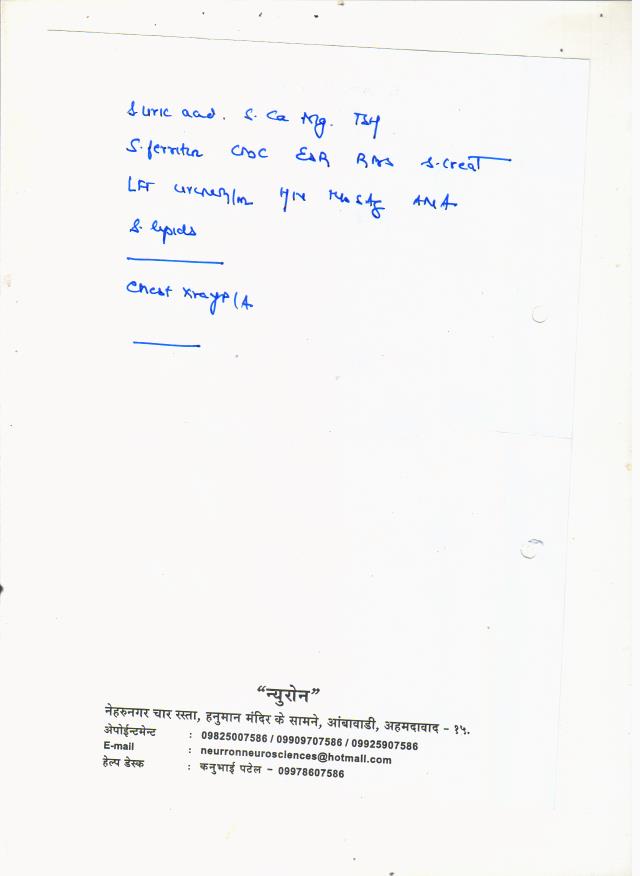 S. uric acid. S. Ca Mg. TSH
S. ferritin CBC ESR RBS S. creat
LFT urine R/m HIV HbsAg ANA
S. lipids
Chest Xray P/A
“न्युरोन”
नेहरुनगर चार रस्ता, हनुमान मंदिर के सामने, आंबावाडी, अहमदावाद - १५.
अेपोईन्टमेन्ट : 09825007586 / 09909707586 / 09925907586
E-mail : neurronneurosciences@hotmail.com
हेल्प डेस्क : कनुभाई पटेल - 09978607586